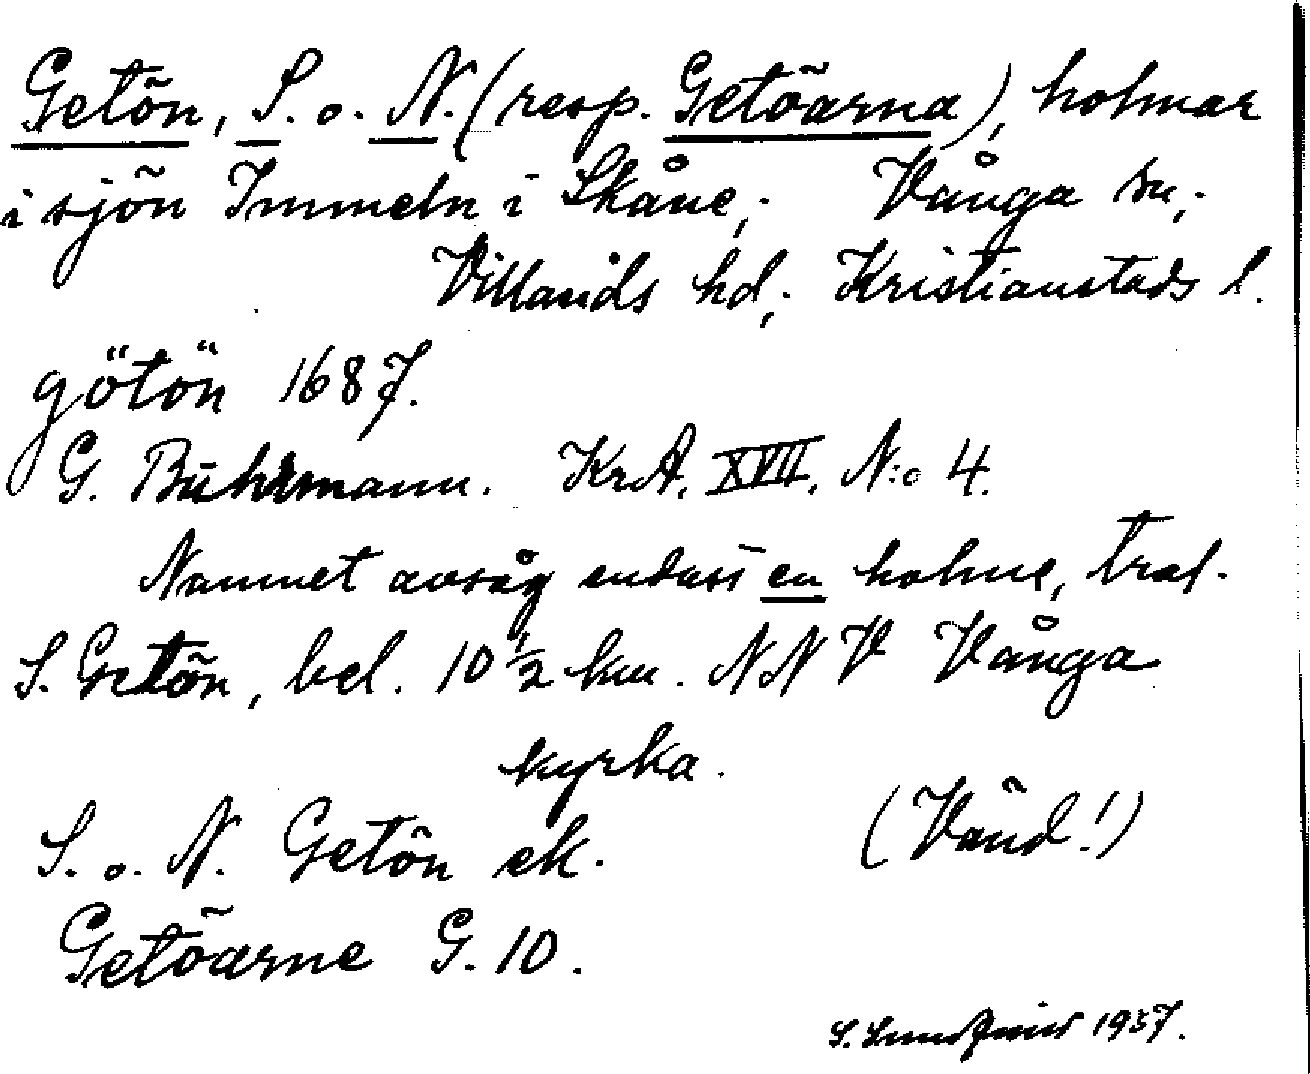 Getön, S. o. N. (resp. Getöarna), holmar
i sjön Immeln i Skåne; Vånga sn,
Villands hd, Kristianstads l.
götön 1687.
G. Buhrmann. KrA. XVII. N:o 4.
Namnet avsåg endast en holme, trol.
S. Getön, bel. 10 1/2 km. NNV Vånga
kyrka.
S. o. N. Getön ek. (Vänd!)
Getöarne G. 10.
S. 1937.